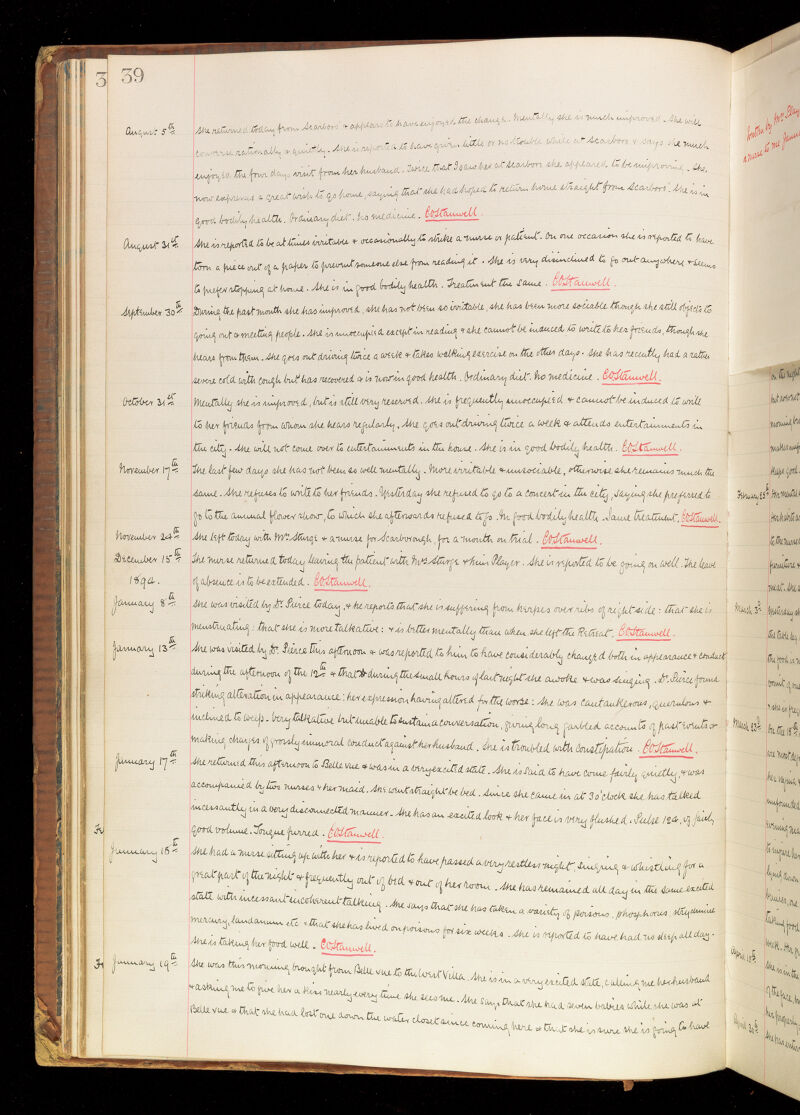 3 39
August 5th She returned today from Scarboro' & appears to have enjoyed the change. Mentally she is much improved. She will
converse rationally & quietly. She is reported to have given little or no trouble while at Scarboro' & says she much
enjoyed the four days visit from her husband. Twice that I saw her at Scarboro she appeared to be improving. She
now expresses a great wish to go home, saying that she had hoped to return home straight from Scarboro'. She is in
good bodily health. Ordinary diet. No medicine.
August 31st She is reported to be at times irritable & occasionally to strike a nurse or patient. On one occasion she is reported to have
torn a piece out of a paper to prevent someone else from reading it. She is very disinclined to go out anywhere & seems
to prefer stopping at home. She is in good bodily health. Treatment the same.
September 30th During the past month she has improved, she has not been so irritable, she has been more sociable though she still objects to
going out & meeting people. She is unoccupied except in reading & she cannot be induced to write to her friends, though she
hears from them. She goes out driving twice a week & takes walking exercise on the other days. She has recently had a rather
severe cold with cough but has recovered & is now in good health. Ordinary diet. No medicine.
October 31st Mentally she is improved, but is still very reserved. She is frequently unoccupied & cannot be induced to write
to her friends from whom she hears regularly. She goes out driving twice a week & attends entertainments in
the city. She will not come over to entertainments in the house. She is in good bodily health.
November 17th The last few days she has not been so well mentally. More irritable & unsociable, otherwise she remains much the
same. She refuses to write to her friends. Yesterday she refused to go to a concert in the city, saying she preferred to
go to the annual flower show, to which she afterwards refused to go. In good bodily health. Same treatment.
November 24th She left today with Mrs. Sturge & a nurse for Scarborough, for a month on trial.
December 15th The nurse returned today leaving the patient with Mrs Sturge & Player. She is reported to be going on well. The leave
1894. of absence is to be extended.
January 8th She was visited by Dr. Pierce today, & he reports that she is suffering from herpes over ribs of right side: that she is
menstruating: that she is more talkative: & is better mentally than when she left the Retreat.
January 13th She was visited by Dr. Pierce this afternoon & was reported to him to have considerably changed both in appearance & conduct
during the afternoon of the 12th & that during the small hours of last night she awoke & was singing. Dr. Pierce found
striking alteration in appearance: her expression having altered for the worse: she was cantankerous, querulous &
inclined to weep. Very talkative but unable to sustain a conversation, giving long garbled accounts of past events or
making charges of grossly immoral conduct against her husband. She is troubled with constipation.
January 17th She returned this afternoon to Belle Vue & was in a very excited state. She is said to have come fairly quietly, & was
accompanied by two nurses & her maid. She went straight to bed. Since she came in at 3 o'clock she has talked
incessantly in a very disconnected manner. She has an excited look & her face is very flushed. Pulse 120, of fairly
good volume. Tongue furred.
January 18th She had a nurse sitting up with her & is reported to have passed a very restless night, singing & whistling for a
great part of the night & frequently out of bed & out of her room. She has remained all day in the same excited
state with incessant incoherent talking. She says that she has taken a variety of poisons, phosphorus, strychnine
mercury, laudanum etc & that she has lived on poisons for six weeks. She is reported to have had no sleep all day.
She is taking her food well.
January 19th She was this morning brought from Belle Vue to the West Villa. She is in a very excited state, calling me her husband
& asking me to give her a kiss nearly every time she sees me. She says that she had seven babies while she was at
Belle Vue & that she had lost one down the water closet since coming here & that she is sure she is going to have